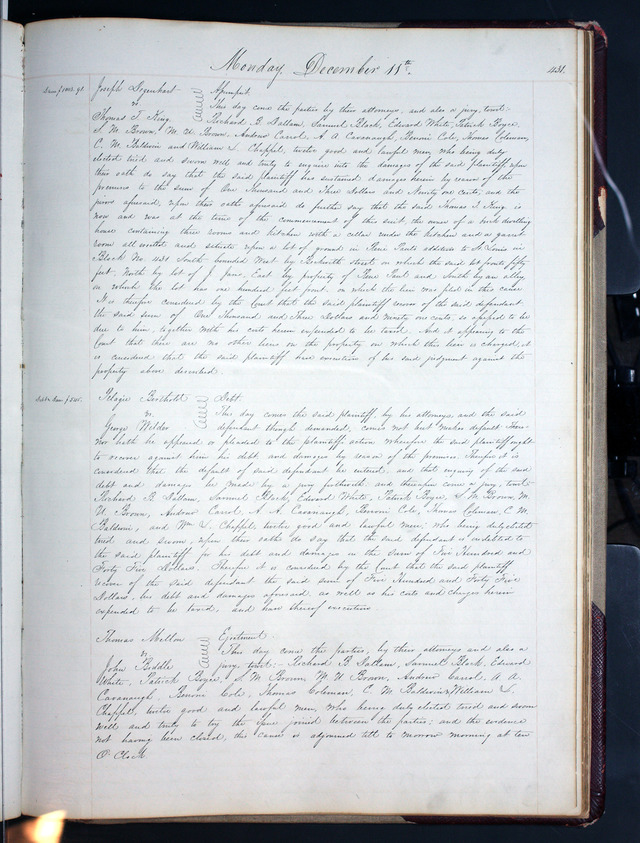 Monday December 11th.
431.
Dam. $1003.91
Joseph Degenhart
vs
Thomas T. King
Assumpsit
This day came the parties by their attorneys, and also a jury, towit:
Richard B. Dallam, Samuel Black, Edward White, Patrick Boyce,
S. M. Brown, M. U. Brown, Andrew Carrol, A. A. Cavanaugh, Benoni Cole, Thomas Coleman,
C. M. Baldwin and William L. Chappel, twelve good and lawful men, who being duly
elected tried and sworn well and truly to enquire into the damages of the said plaintiff upon
their oath do say that the said plaintiff has sustained damages herein by reason of the
premises to the sum of One Thousand and Three Dollars and Ninety one Cents, and the
jurors aforesaid, upon their oaths aforesaid do further say that the said Thomas T. King is
now and was at the time of the commencement of this suit, the owner of a brick dwelling
house containing three rooms and kitchen with a cellar under the kitchen and a garret
room all and situate upon a lot of ground in Rene Pauls addition to St Louis in
Block No. 431 South bounded West by Rosworth street on which the said lot fronts fifty
feet. North by lot of J. , East by property of Rene Paul and South by an alley
on which the lot has one hundred feet front. on which the lien was filed in this cause
It is therefore considered by the Court that the said plaintiff recover of the said defendant
the said sum of One Thousand and Three Dollars and ninety one cents, so assessed to be
due to him, together with his costs herein expended to be taxed. And it appearing to the
Court that there are no other liens on the property on which this lien is charged, it
is considered that the said plaintiff have execution of his said judgment against the
property above described.
Debt & Dam. $545.
Pelagie Berthold
vs.
George Wilder
Debt.
This day comes the said plaintiff, by his attorneys, and the said
defendant though demanded, comes not but makes default there-
nor hath he appeared or pleaded to the plaintiffs action wherefore the said plaintiff ought
to recover against him his debt and damages by reason of the premises. Therefore it is
considered that the default of said defendant be entered, and that enquiry of the said
debt and damages be made by a jury forthwith, and thereupon came a jury, towit:
Richard B. Dallam, Samuel Black, Edward White, Patrick Boyce, S. M. Brown, M.
U. Brown, Andrew Carrol, A. A. Cavanaugh, Benoni Cole, Thomas Coleman, C. M.
Baldwin, and Wm L. Chappel, twelve good and lawful men, who being duly elected
tried and sworn, upon their oaths do say that the said defendant is indebted to
the said plaintiff for his debt and damages in the sum of Five Hundred and
Forty Five Dollars. Therefore it is considered by the Court that the said plaintiff
recover of the said defendant the said sum of Five Hundred and Forty Five
Dollars, his debt and damages aforesaid, as well as his costs and charges herein
expended to be taxed, and have thereof execution
Thomas Mellon
vs.
John Biddle
Ejectment.
This day came the parties, by their attorneys and also a
jury, towit:- Richard B. Dallam, Samuel Black, Edward
White, Patrick Boyce, S. M. Brown, M. U. Brown, Andrew Carrol, A. A.
Cavanaugh, Benoni Cole, Thomas Coleman, C. M. Baldwin & William L.
Chappel, twelve good and lawful men, who being duly elected tried and sworn
well and truly to try the issue joined between the parties; and the evidence
not having been closed, this cause is adjourned till to morrow morning at ten
O'Clock.